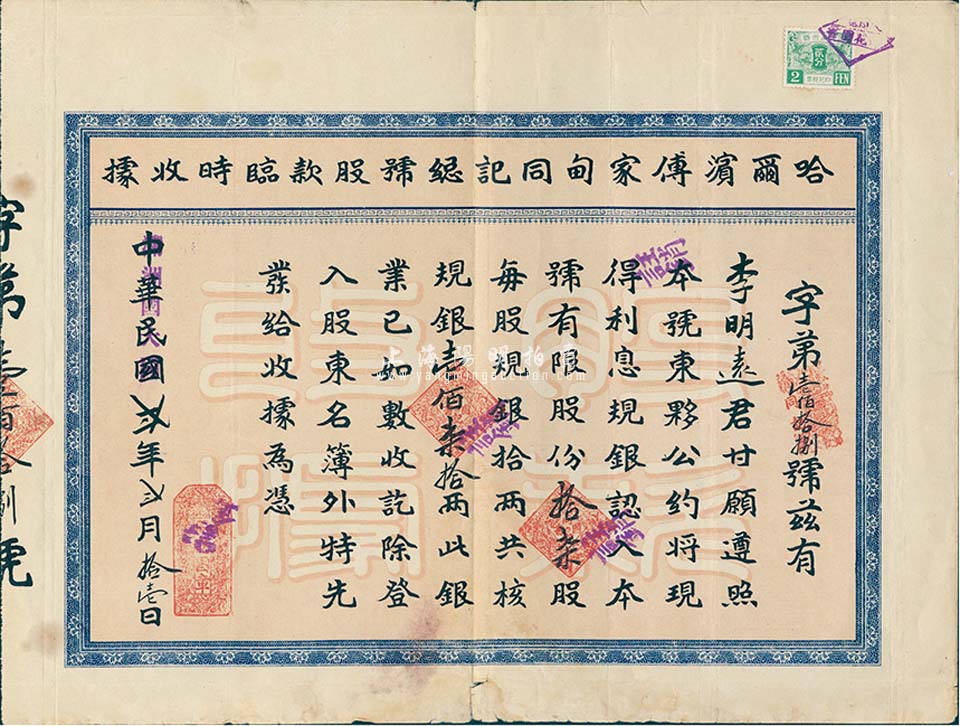 哈爾濱傅家甸同記總號股款臨時收據
字第壹佰拾捌號茲有
李明遠君甘願遵照
本號東夥公約將現
得利息現銀認入本
號有限股份拾柒股
每股規銀拾兩共核
規銀壹佰柒拾兩此銀
業已如數收訖除登
入股東名簿外特先
發給收據為憑
中華民國 年 月拾壹日
字第壹百拾捌號
貳分
2 FEN
上海陽明拍賣
www.yangmingauction.com